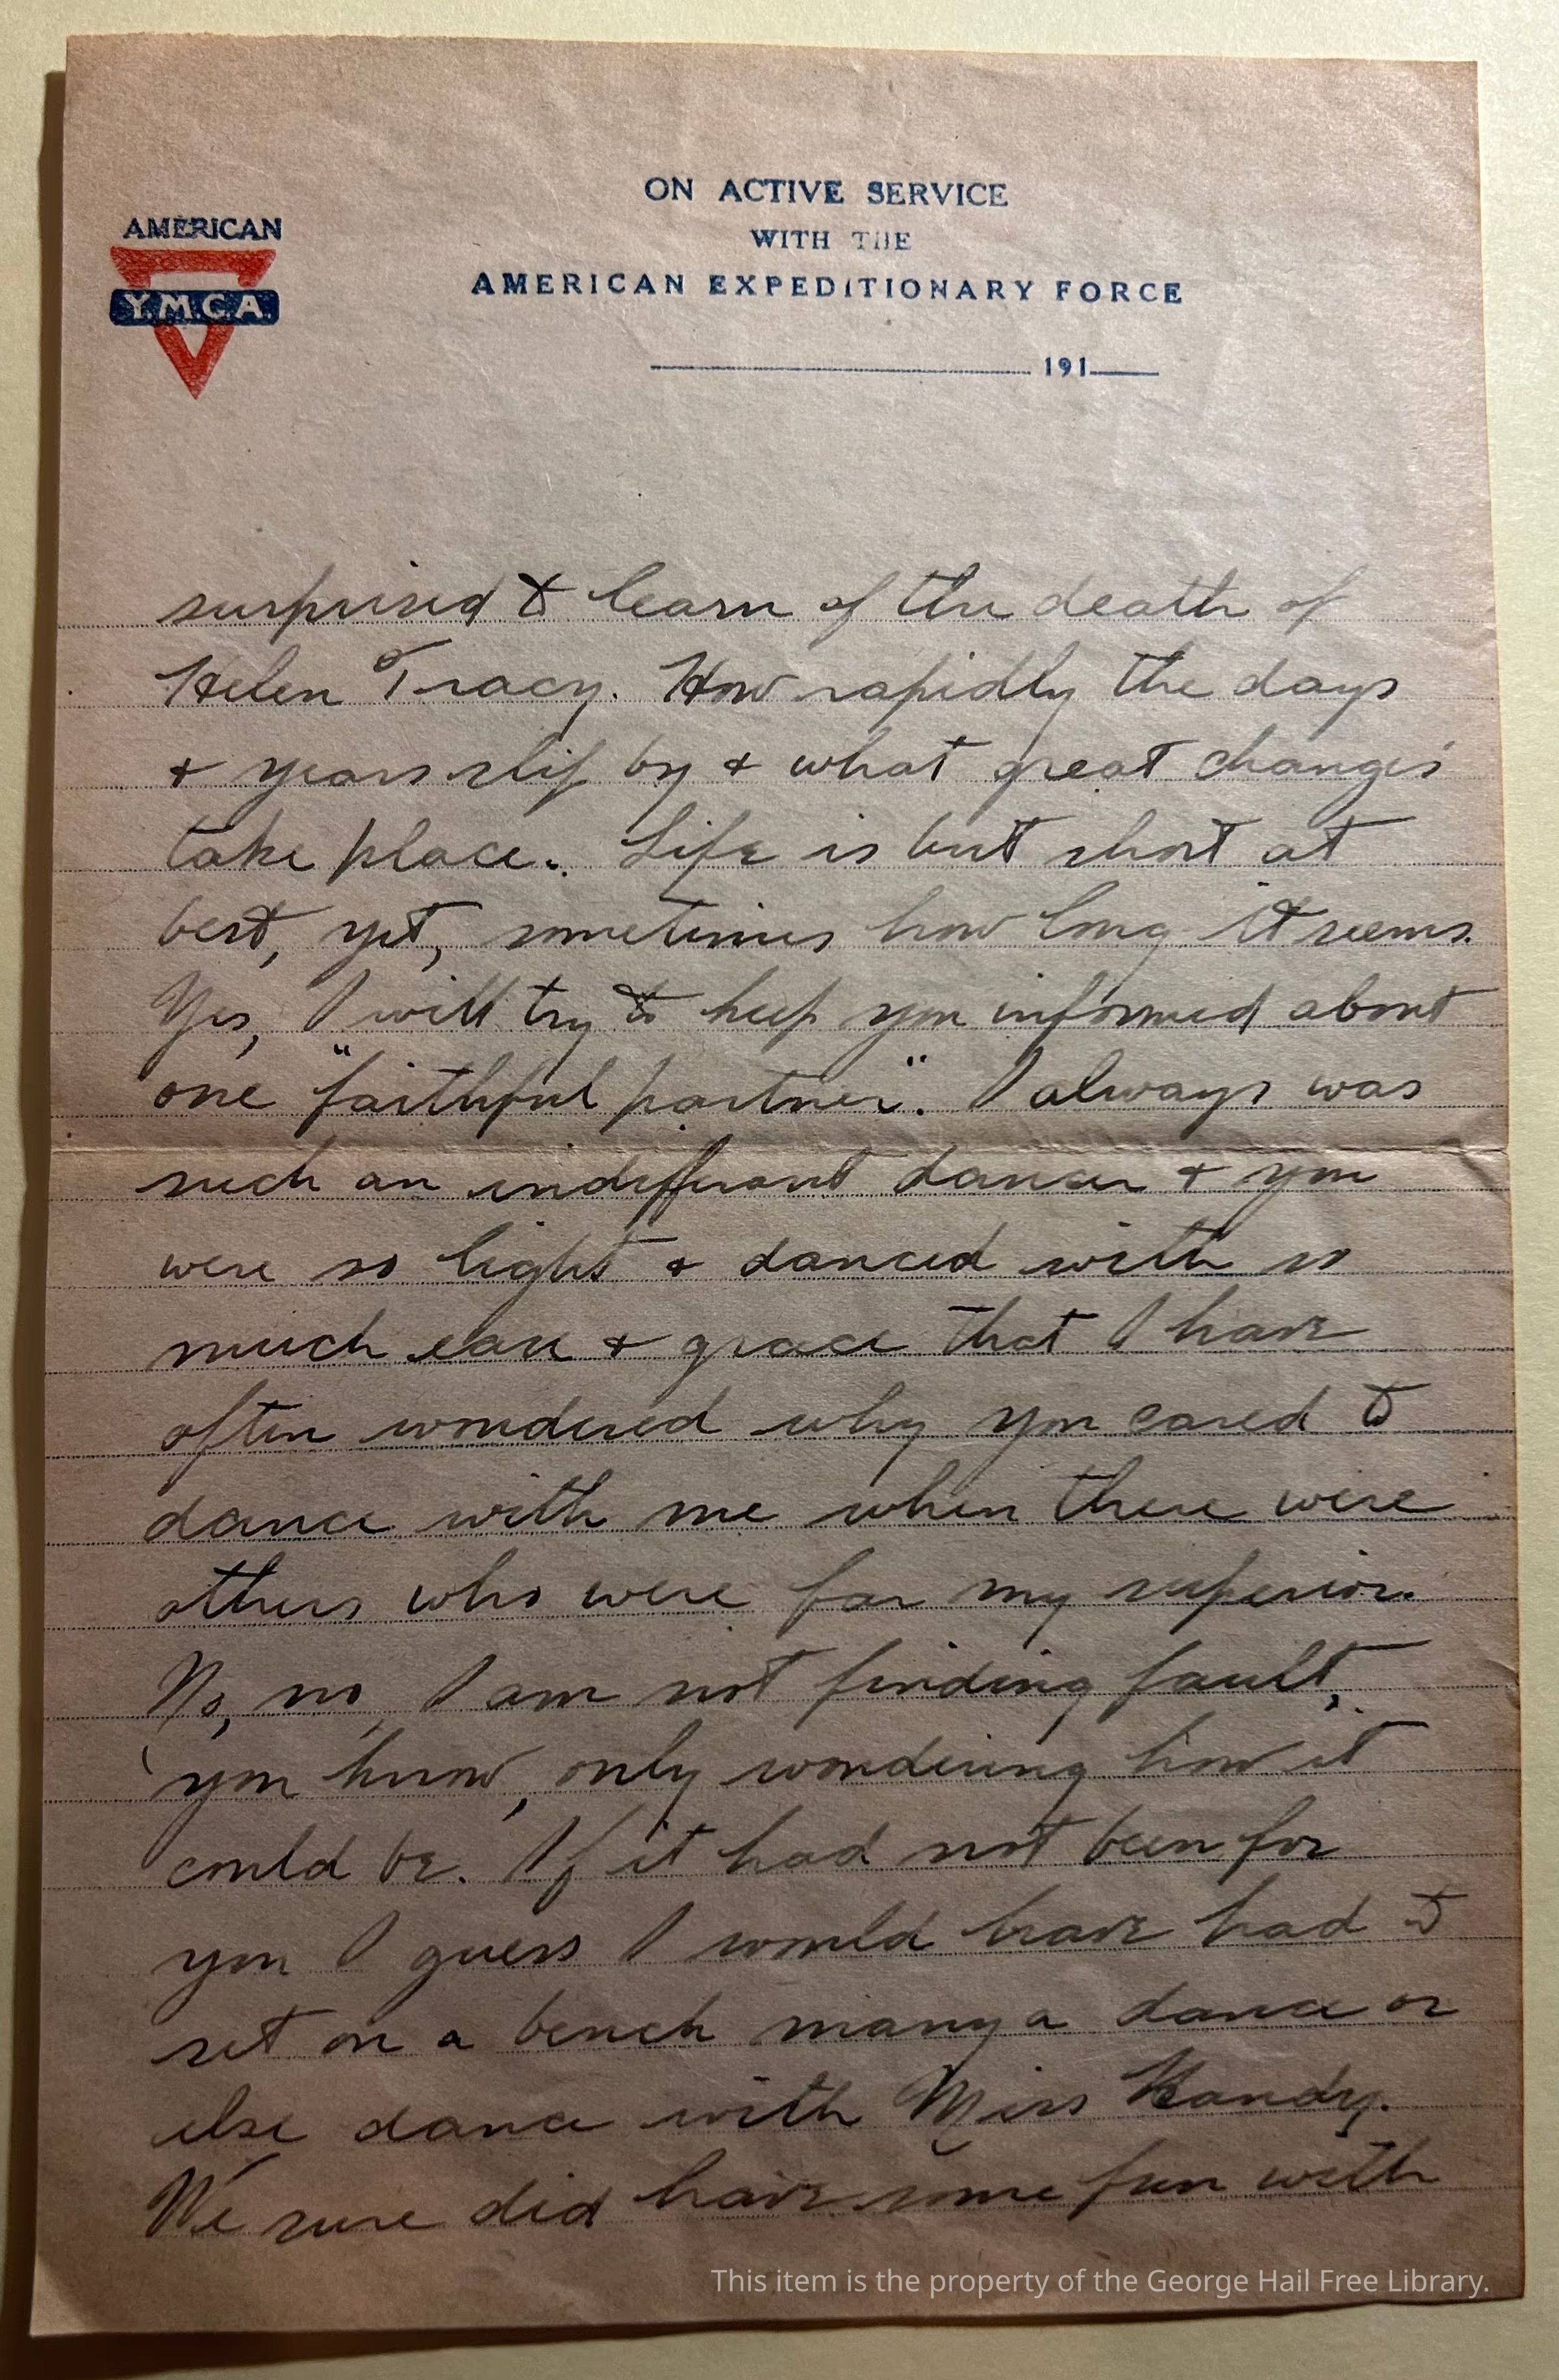 ON ACTIVE SERVICE
WITH THE
AMERICAN EXPEDITIONARY FORCE
AMERICAN
Y.M.C.A.
191
surprised to learn of the death of
Helen Tracy. How rapidly the days
+ years slip by + what great changes
take place. Life is but short at
best, yet, sometimes how long it seems.
Yes, I will try to keep you informed about
one "faithful partner". I always was
such an indifferent dancer + you
were so light + danced with so
much ease + grace that I have
often wondered why you cared to
dance with me when there were
others who were far my superior.
No, no, I am not finding fault,
you know, only wondering how it
could be. If it had not been for
you I guess I would have had to
set on a bench many a dance or
else dance with Miss Handy.
We sure did have some fun with
This item is the property of the George Hail Free Library.